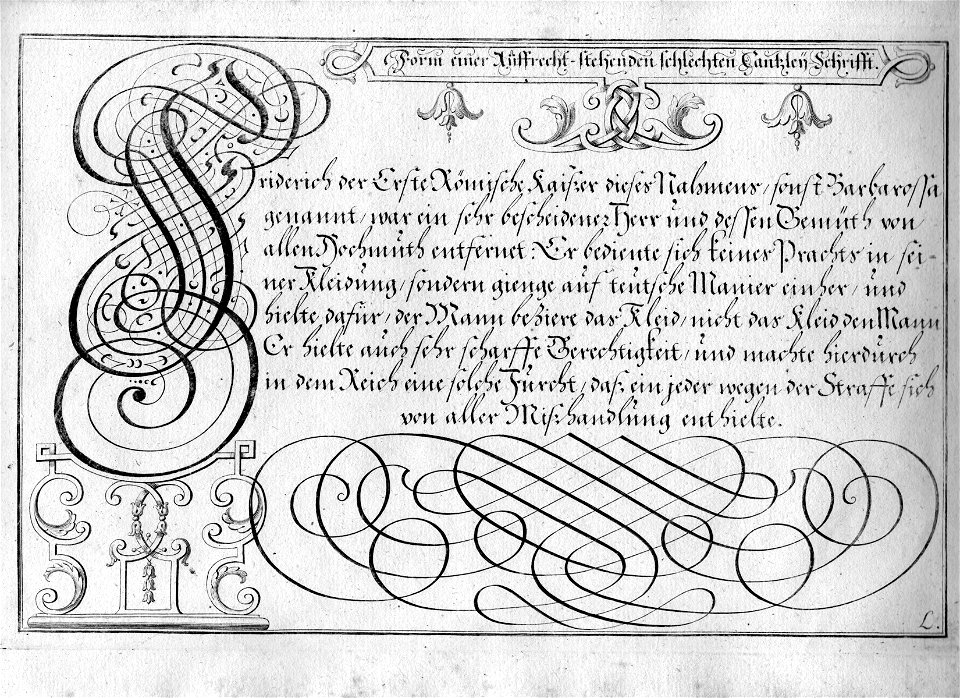 Form einer Auffrecht-stehenden schlechten Cantzley Schrifft.
Friderich der Erste Römische Kaißer dieses Nahmens, sonst Barbarossa
genannt, war ein sehr bescheidener Herr und dessen Gemüth von
allen Hochmuth entfernet: Er bediente sich keines Prachts in sei-
ner Kleidung, sondern gienge auf teutsche Manier einher, und
hielte dafür, der Mann beziere das Kleid, nicht das Kleid den Mann
Er hielte auch sehr scharffe Gerechtigkeit, und machte hierdurch
in dem Reich eine solche Furcht, daß ein jeder wegen der Straffe sich
von aller Mißhandlung enthielte.
L.